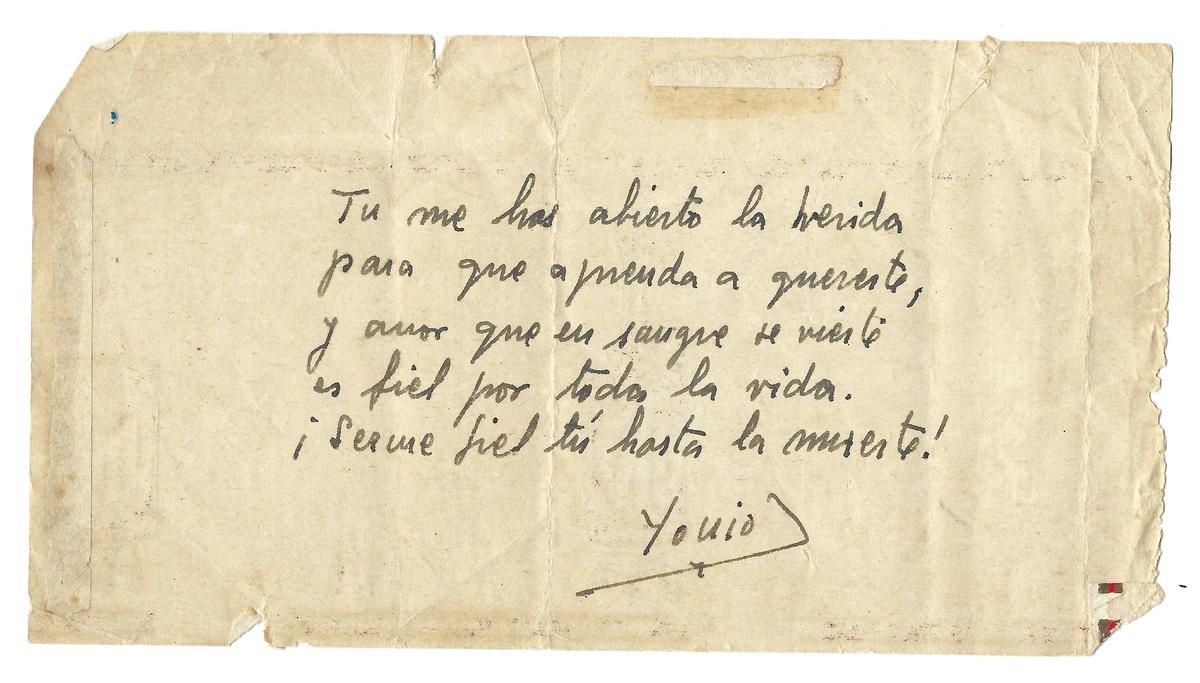 Tu me has abierto la herida
para que aprenda a quererte,
y amor que en sangre se vierte
es fiel por toda la vida.
¡Serme fiel tú hasta la muerte!